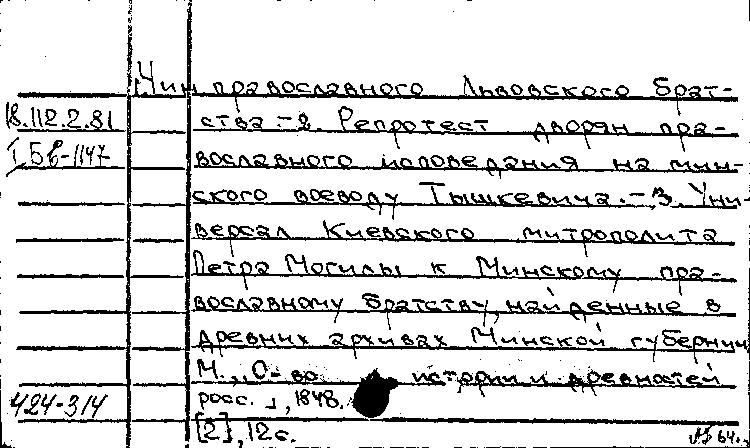 Чин православного Львовского брат-
18.112.2.81
ства.-2. Репротест дворян пра-
Б8-1147
вославного исповедания на мин-
ского воеводу Тышкевича.-3. Уни-
версал Киевского митрополита
Петра Могилы к Минскому пра-
вославному братству, найденные в
древних архивах Минской губернии
М., О-во истории и древностей
росс., 1848.
424-314
[2], 12с.
64.